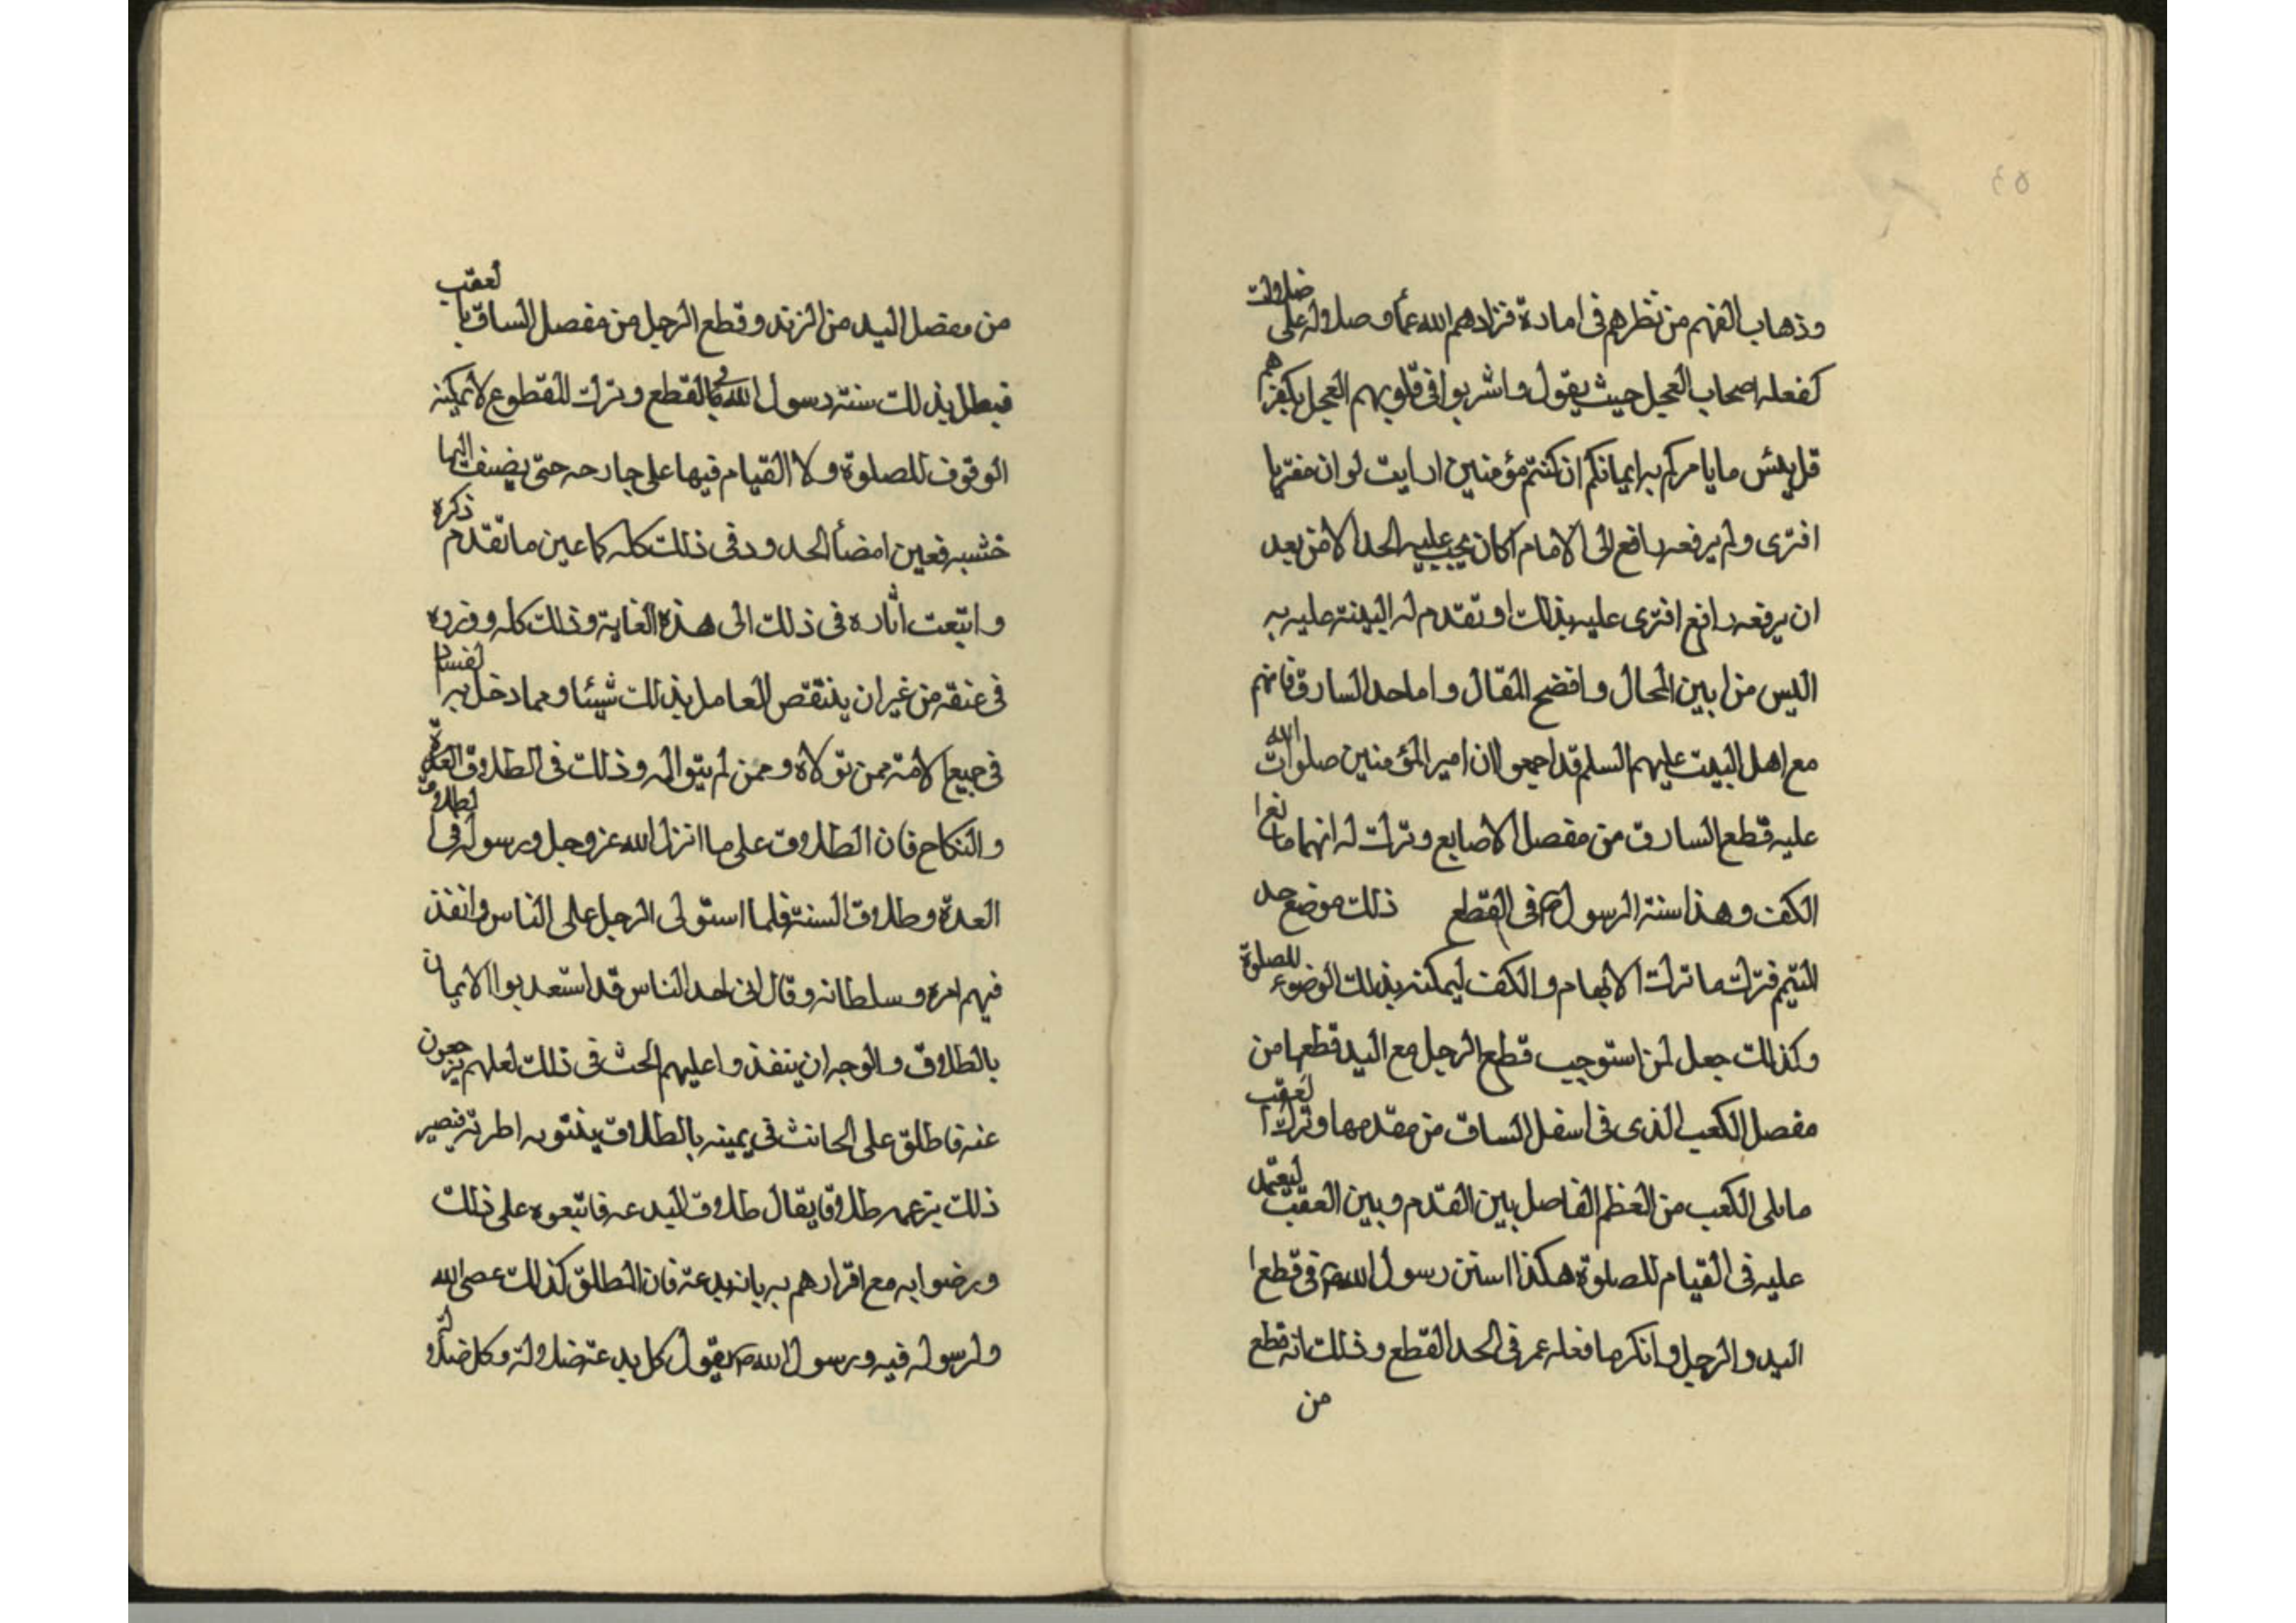 ٥٣
وذهاب الفهم من نظرهم فى امادة فزادهم الله عمأ وصلوله على ضلولت
كفعله اصحاب العجل حيث يقول واشربوا فى قلوبهم العجل بكفرهم
قل بئس ما يامركم به ايمانكم ان كنتم مؤمنين ارايت لو ان مفتريا
افترى ولم يرفعه رافع الى الامام اكان يجب عليه الحد الا من بعد
ان يرفعه رافع افترى عليه بذلك او تقدم له البينة عليه به
اليس من ابين المحال وافضح المقال واما حد السارق فانهم
مع اهل البيت عليهم السلم قد اجمعوا ان امير المؤمنين صلوات الله
عليه قطع السارق من مفصل الاصابع وترك له ابهاما مع ا
الكف وهذا سنة الرسول ص فى القطع ذلك موضع حد
التيمم فترك ما ترك الابهام والكف ليمكنه بذلك الوضوء للصلوة
وكذلك جعل لمن استوجب قطع الرجل مع اليد قطعها من
مفصل الكعب الذى فى اسفل الساق من مقدمها وترك العقب
مايلى الكعب من العظم الفاصل بين القدم وبين العقب ليعتمد
عليه فى القيام للصلوة هكذا استن رسول الله ص فى قطع ا
اليد والرجل وانكر ما فعله عمر فى الحد القطع وذلك انه قطع
من
من مفصل اليد من الزند وقطع الرجل من مفصل الساق بالعقب
فبطل بذلك سنة رسول الله ص فى القطع وترك المقطوع لا يمكنه
الوقوف للصلوة ولا القيام فيها على جارحه حتى يضيف اليها
خشبه فعين امضأ الحدود فى ذلك كله كاعين ما تقدم ذكره
واتبعت اثاره فى ذلك الى هذه الغاية وذلك كله ووزره
فى عنقه من غير ان ينتقص العامل بذلك شيئا ومما دخل به الفساد
فى جميع الامة ممن تولاه وممن لم يتواله وذلك فى الطلاق العدة
والنكاح فان الطلاق على ما انزل الله عز وجل ورسوله فى الطلاق
العدة وطلاق السنة فلما استولى الرجل على الناس وانفذ
فيهم امره وسلطانه وقال انى احد الناس قد استعد بوا الايمان
بالطلاق والوجه ان ينفذوا عليهم الحث فى ذلك لعلهم يرجعون
عنه فاطلق على الحانث فى يمينه بالطلاق ينتو به اطرته فيصير
ذلك بزعمه طلاقا يقال طلاق البدعه فاتبعوه على ذلك
ورضوا به مع اقرارهم به بانه بدعة فان المطلق كذلك عصى الله
ولرسوله فيه ورسول الله ص يقول كل بدعة ضلولة وكل ضلولة